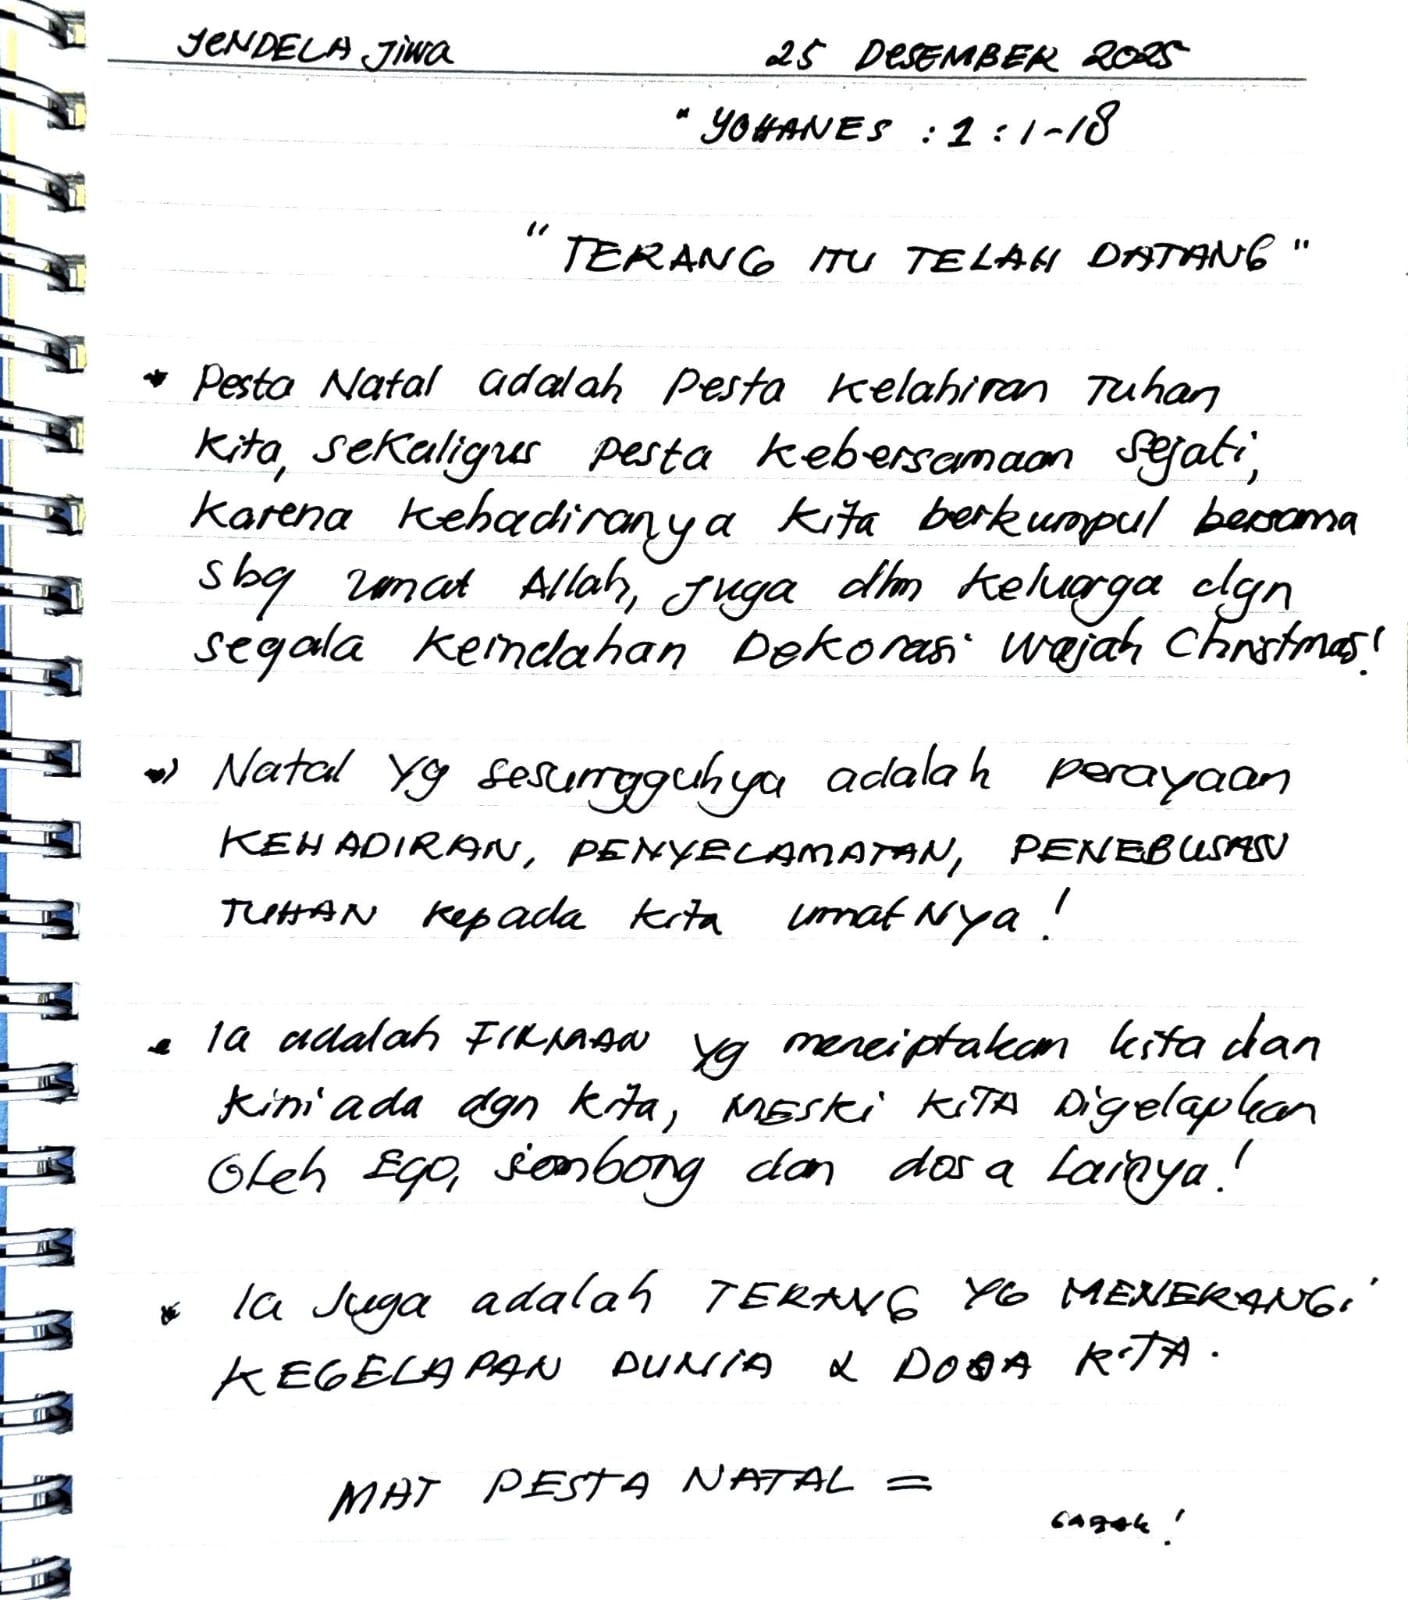 JENDELA Jiwa 25 DESEMBER 2025
" YOHANES : 1 : 1-18
" TERANG ITU TELAH DATANG "
* Pesta Natal adalah Pesta Kelahiran Tuhan
Kita, sekaligus pesta kebersamaan sejati,
karena kehadiranya kita berkumpul bersama
sbg umat Allah, juga dlm keluarga dgn
segala keindahan Dekorasi wajah Christmas!
Natal yg sesungguhya adalah perayaan
KEHADIRAN, PENYELAMATAN, PENEBUSAN
TUHAN kepada kita umatNya!
Ia adalah FIRMAN yg menciptakan kita dan
kini ada dgn kita, MESKI KITA Digelapkan
oleh Ego, sombong dan dosa Lainya!
* Ia Juga adalah TERANG YG MENERANGI
KEGELAPAN DUNIA & DOSA KITA.
MAT PESTA NATAL =